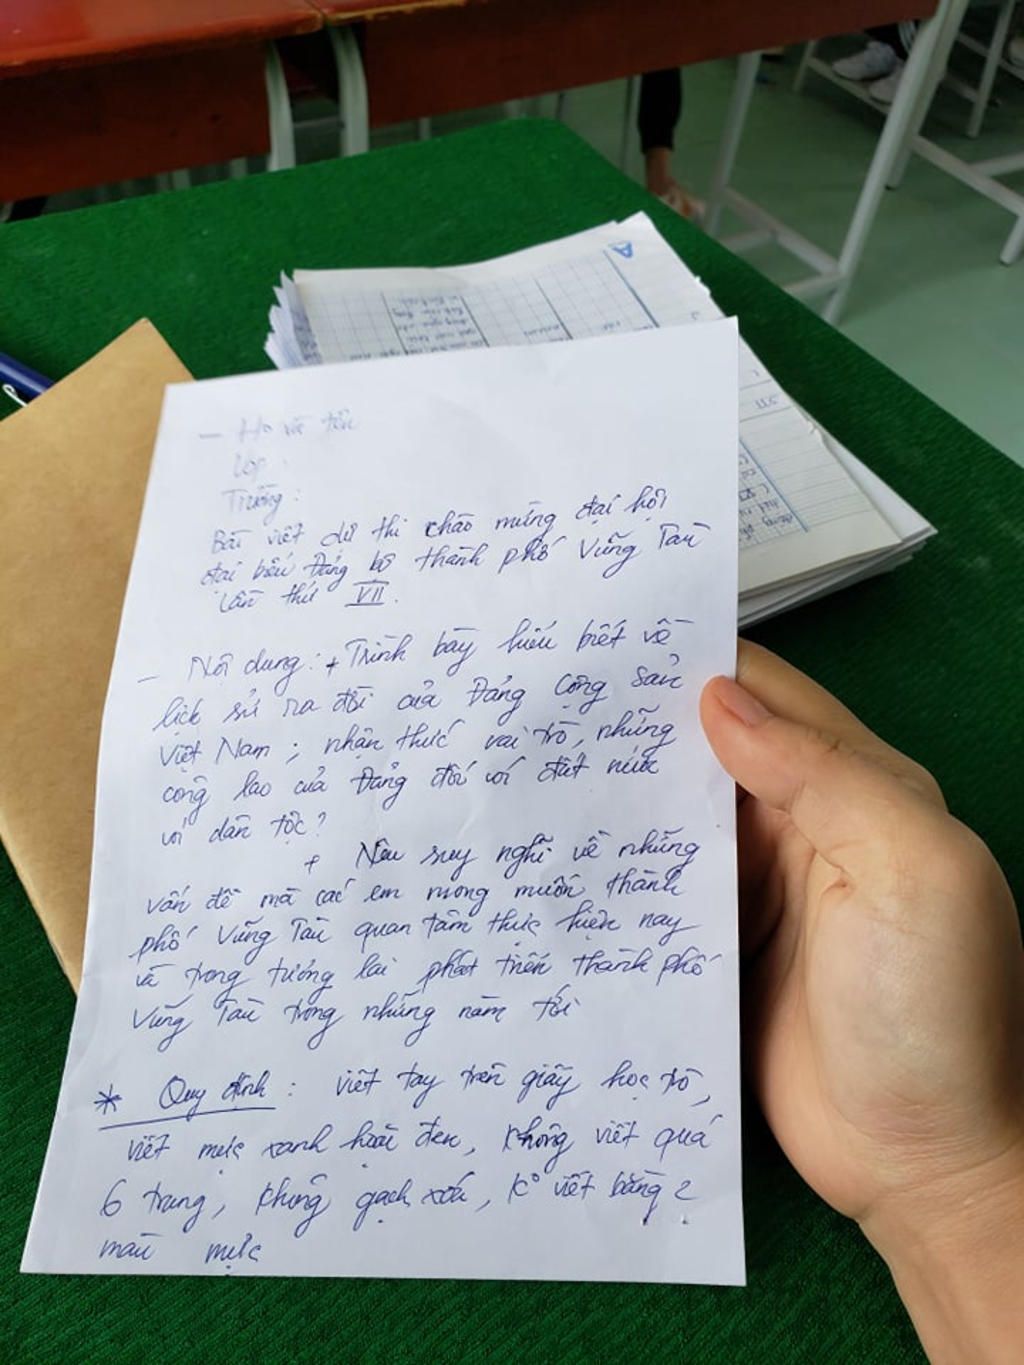 - Họ và tên
Lớp :
Trường :
Bài viết dự thi chào mừng đại hội
đại biểu Đảng bộ thành phố Vũng Tàu
lần thứ VII.
- Nội dung : + Trình bày hiểu biết về
lịch sử ra đời của Đảng Cộng Sản
Việt Nam ; nhận thức vai trò, những
công lao của Đảng đối với đất nước
với dân tộc ?
+ Nêu suy nghĩ về những
vấn đề mà các em mong muốn thành
phố Vũng Tàu quan tâm thực hiện nay
và trong tương lai phát triển thành phố
Vũng Tàu trong những năm tới
* Quy định : viết tay trên giấy học trò,
viết mực xanh hoặc đen, không viết quá
6 trang, không gạch xóa, K° viết bằng 2
màu mực
A
STT